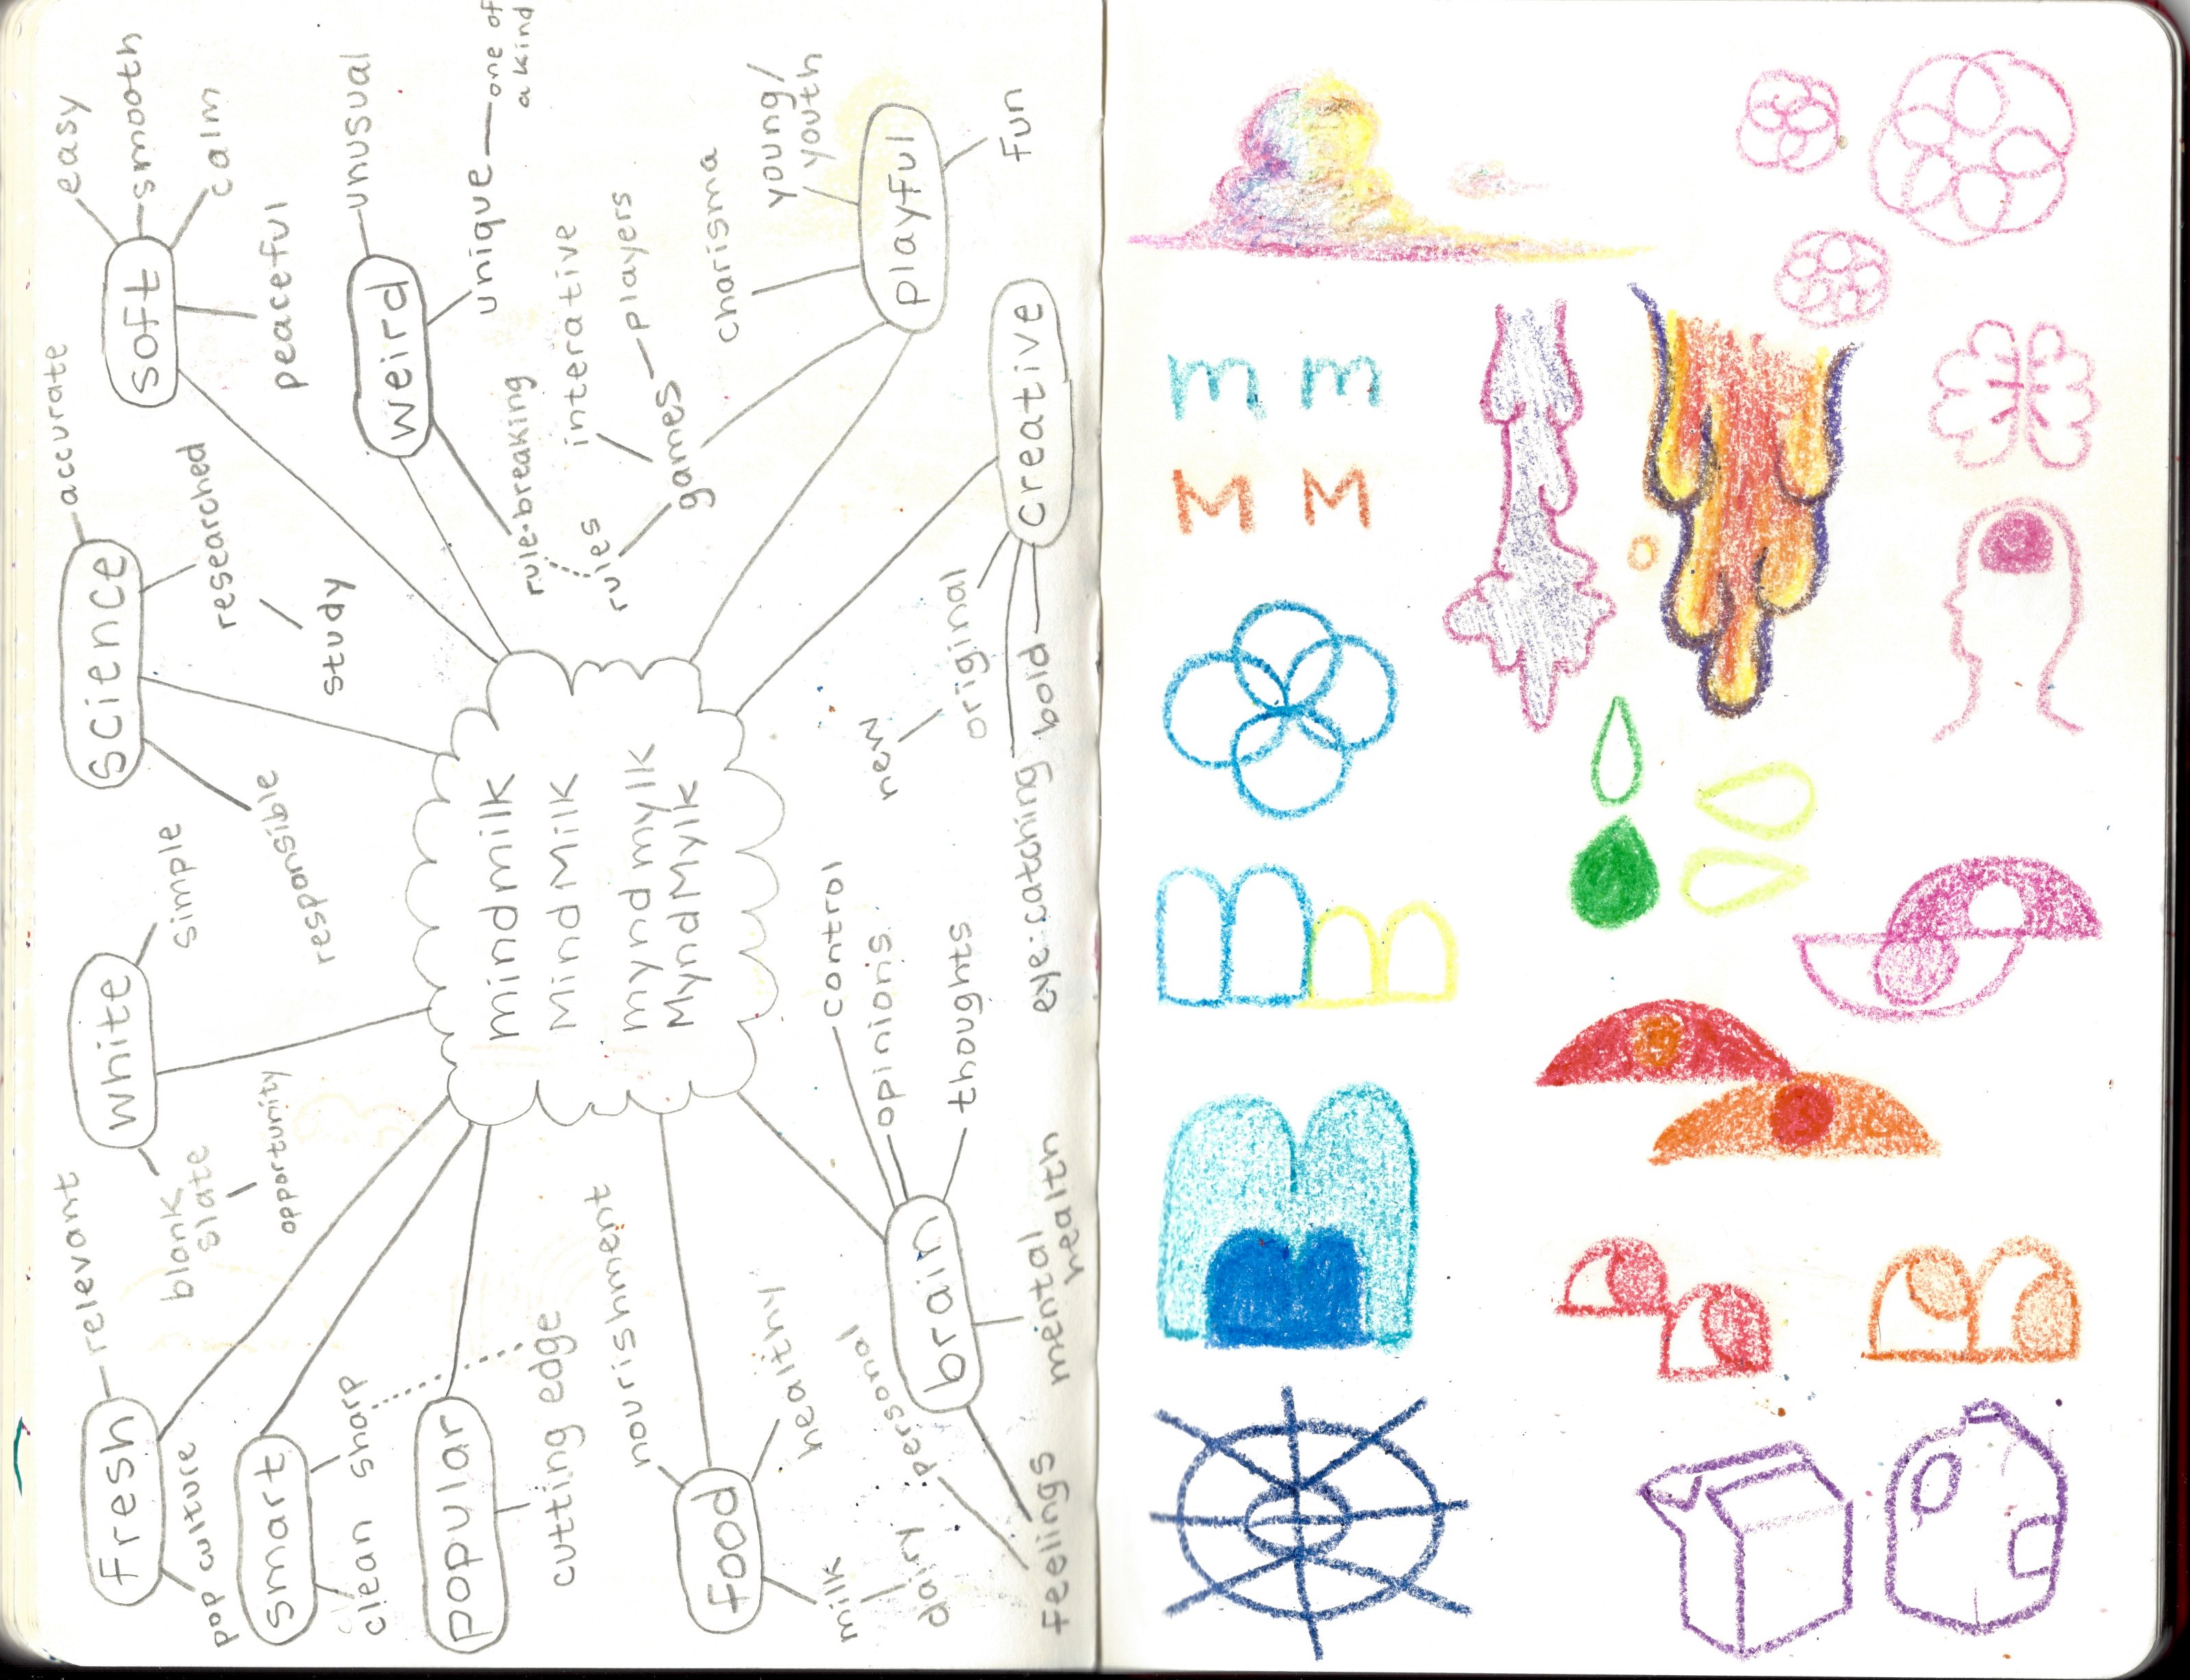 Fresh
relevant
pop culture
white
simple
blank
slate
opportunity
science
accurate
researched
study
responsible
soft
easy
smooth
calm
peaceful
smart
sharp
clean
popular
cutting edge
weird
unusual
unique
one of
a kind
rule-breaking
rules
games
interative
players
mindmilk
MindMilk
myndmylk
MyndMylk
playful
charisma
young/
youth
fun
creative
original
new
bold
eye-catching
food
nourishment
healthy
milk
dairy
brain
control
opinions
thoughts
mental
health
feelings
personal
m m
M M